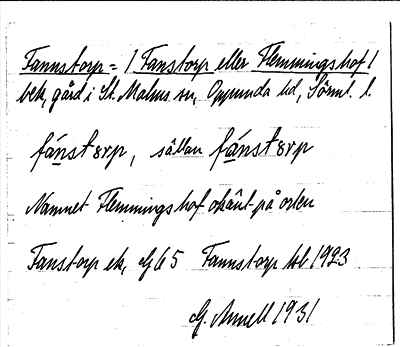 Fannstorp = / Fanstorp eller Flemmingshof /
bek, gård i St. Malms sn, Oppunda hd, Sörml. l.
fánstɤrp, sällan fánstɤrp
Namnet Flemmingshof okänt på orten
Fanstorp ek, Gb 5 Fannstorp tb 1923
G. Annell 1931